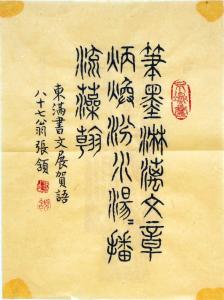 筆墨淋漓文章
炳煥汾水湯湯播
流藻翰
東滿書文展賀語
八十七翁張頷